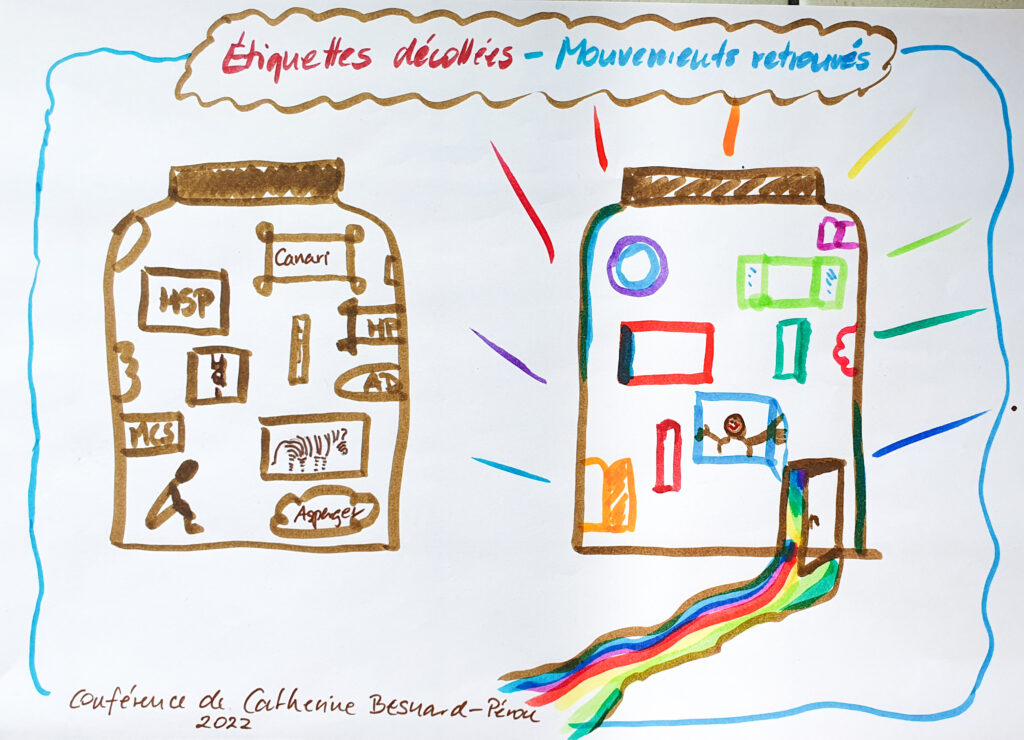 Étiquettes décollées - Mouvements retrouvés
Canari
HSP
HP
AD
MCS
Asperger
Conférence de Catherine Besnard-Pérou
2022